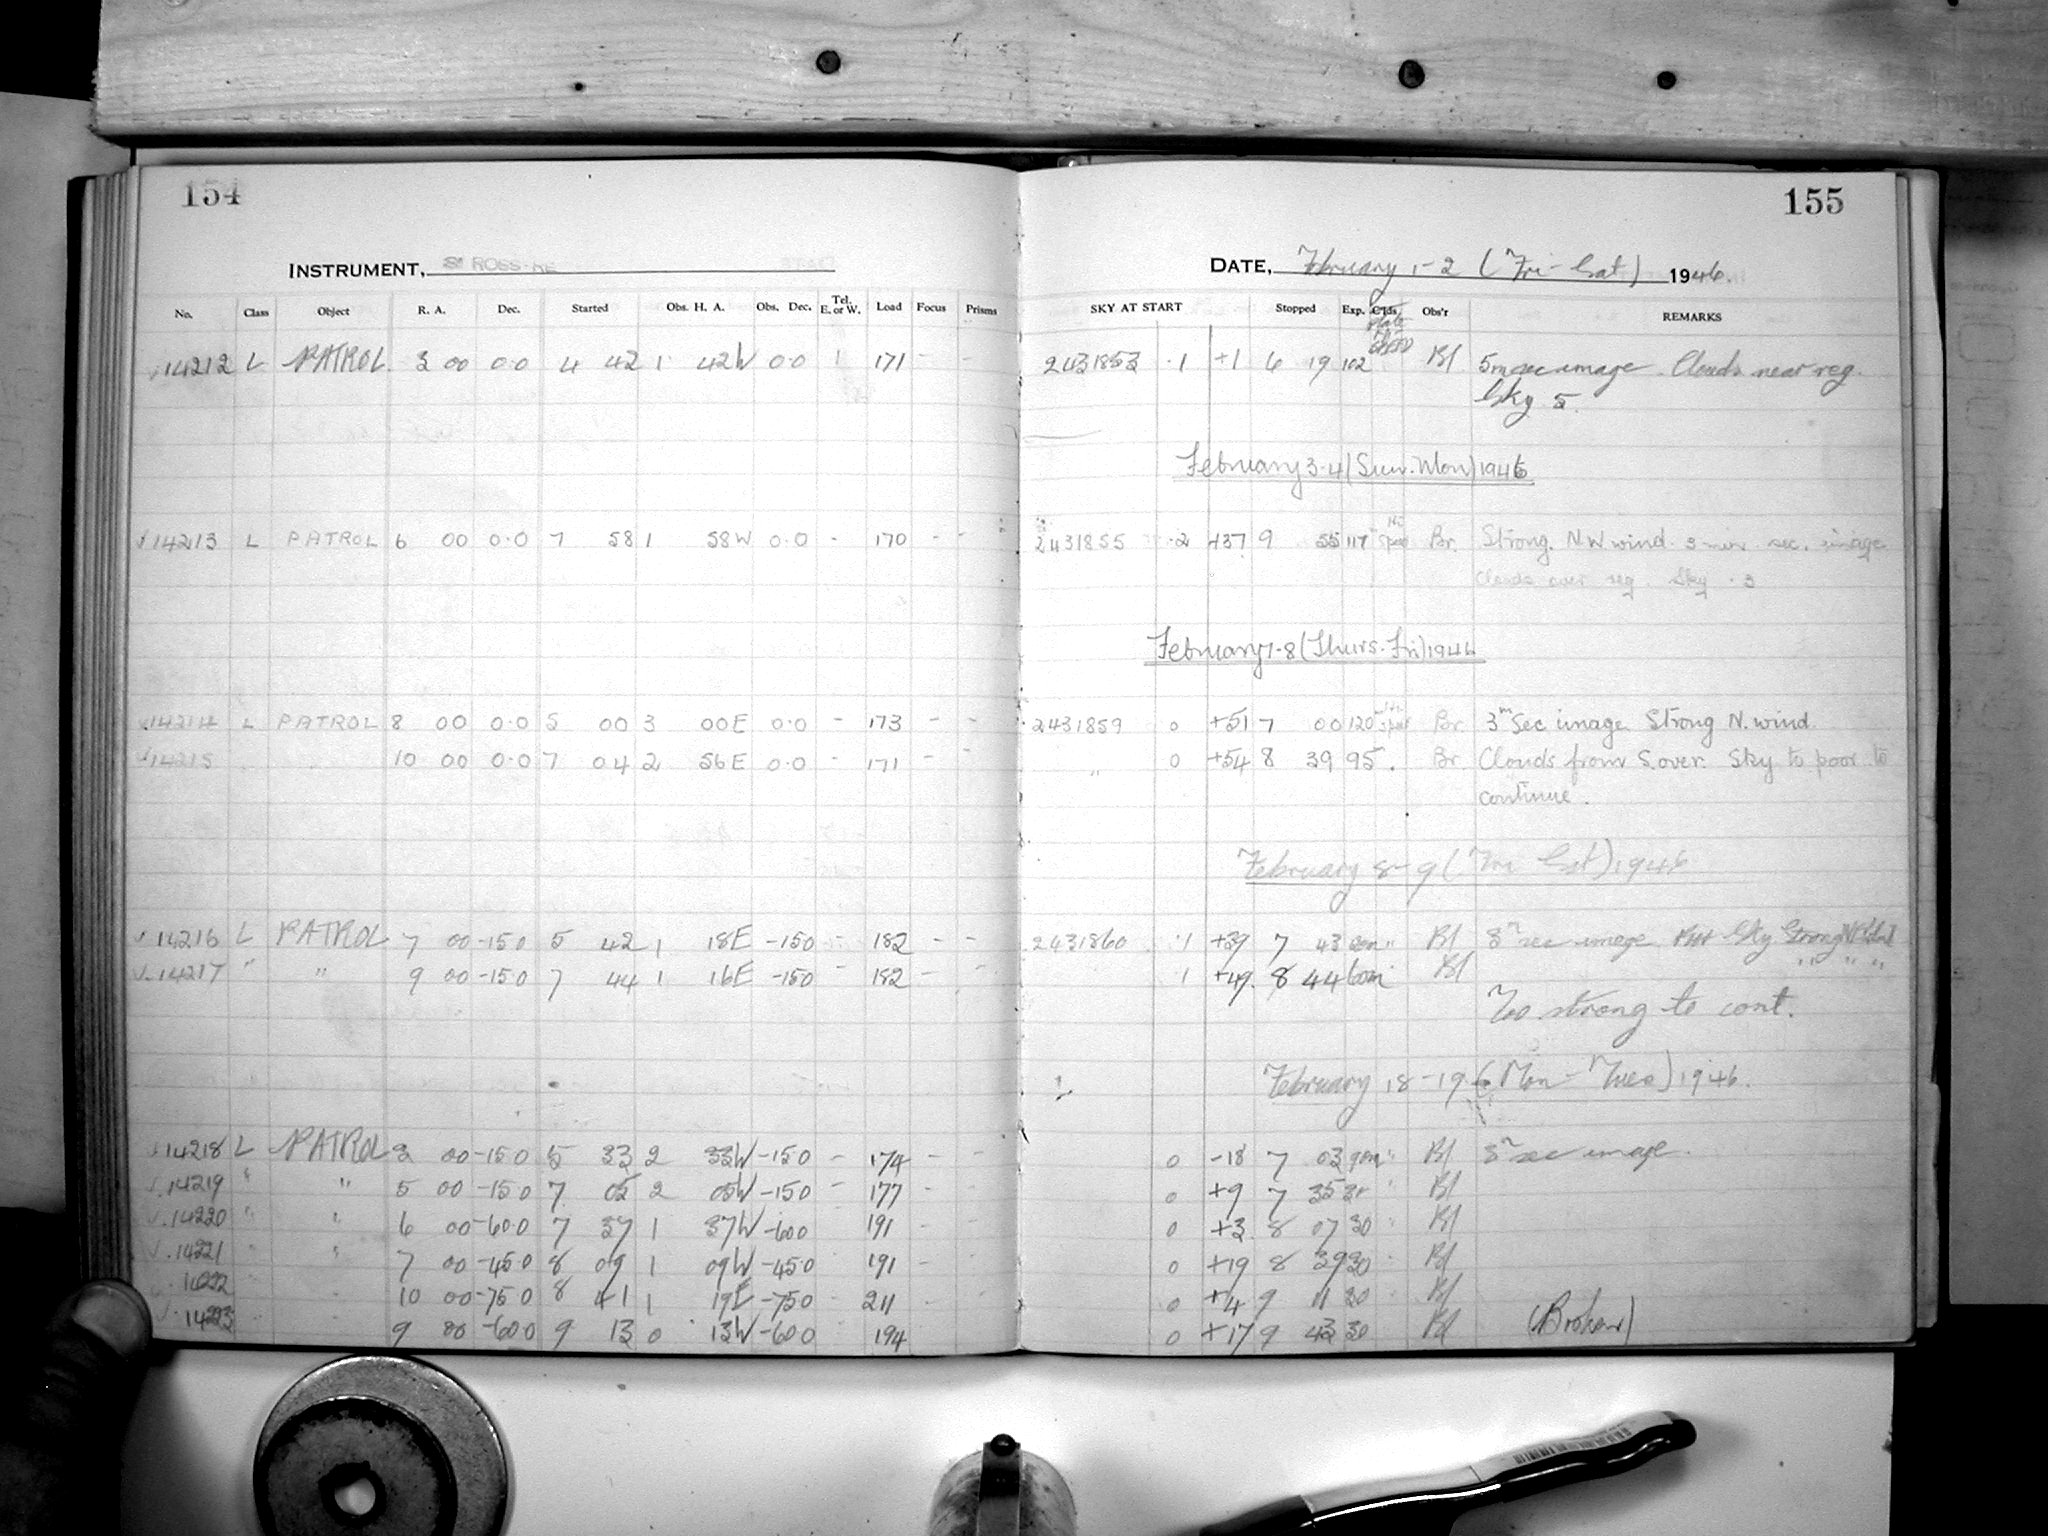 154
INSTRUMENT, ROSS-
No. Class Object R. A. Dec. Started Obs. H. A. Obs. Dec. Tel. E. or W. Load Focus Prisms
14212 L PATROL 3 00 0.0 4 42 1 42W 0.0 171 - -
14213 L PATROL 6 00 0.0 7 58 1 58W 0.0 - 170 - -
14214 L PATROL 8 00 0.0 5 00 3 00E 0.0 - 173 - -
14215 " " 10 00 0.0 7 04 2 56E 0.0 - 171 - -
14216 L PATROL 7 00 -15 0 5 42 1 18E -15 0 - 182 - -
14217 " " 9 00 -15 0 7 44 1 16E -15 0 - 182 - -
14218 L PATROL 3 00 -15 0 5 33 2 33W -15 0 - 174 - -
14219 " " 5 00 -15 0 7 05 2 05W -15 0 - 177 - -
14220 " " 6 00 -60 0 7 37 1 37W -60 0 191 - -
14221 " " 7 00 -45 0 8 09 1 09W -45 0 191 -
14222 " " 10 00 -75 0 8 41 1 19E -75 0 211
14223 9 00 -60 0 9 13 0 13W -60 0 194
155
DATE, February 1-2 (Fri-Sat) 1946.
SKY AT START Stopped Exp. Clds Obs'r REMARKS
2431853 .1 +1 6 19 102 Bl 5m sec image. Clouds near reg.
Sky 5.
February 3-4 (Sun-Mon) 1946
2431855 .2 +37 9 55 117 Br. Strong. NW wind. 3 min. sec. image
Clouds over reg. Sky .3
February 7-8 (Thurs-Fri) 1946
2431859 0 +51 7 00 120 Br. 3m Sec image. Strong N. wind.
" 0 +54 8 39 95 . Br. Clouds from S. over. Sky to poor to
continue.
February 8-9 (Fri Sat) 1946
2431860 .1 +39 7 43 " Bl 3m sec image. Sky Strong
1 +49 8 44 60m Bl " " "
Too strong to cont.
February 18-19 (Mon-Tues) 1946.
0 -18 7 03 90m " Bl 3m sec image.
0 +9 7 35 " Bl
0 +3 8 07 30 " Bl
0 +19 8 39 30 " Bl
0 +4 9 11 30 " Bl
0 +17 9 43 30 Bl (Broken)